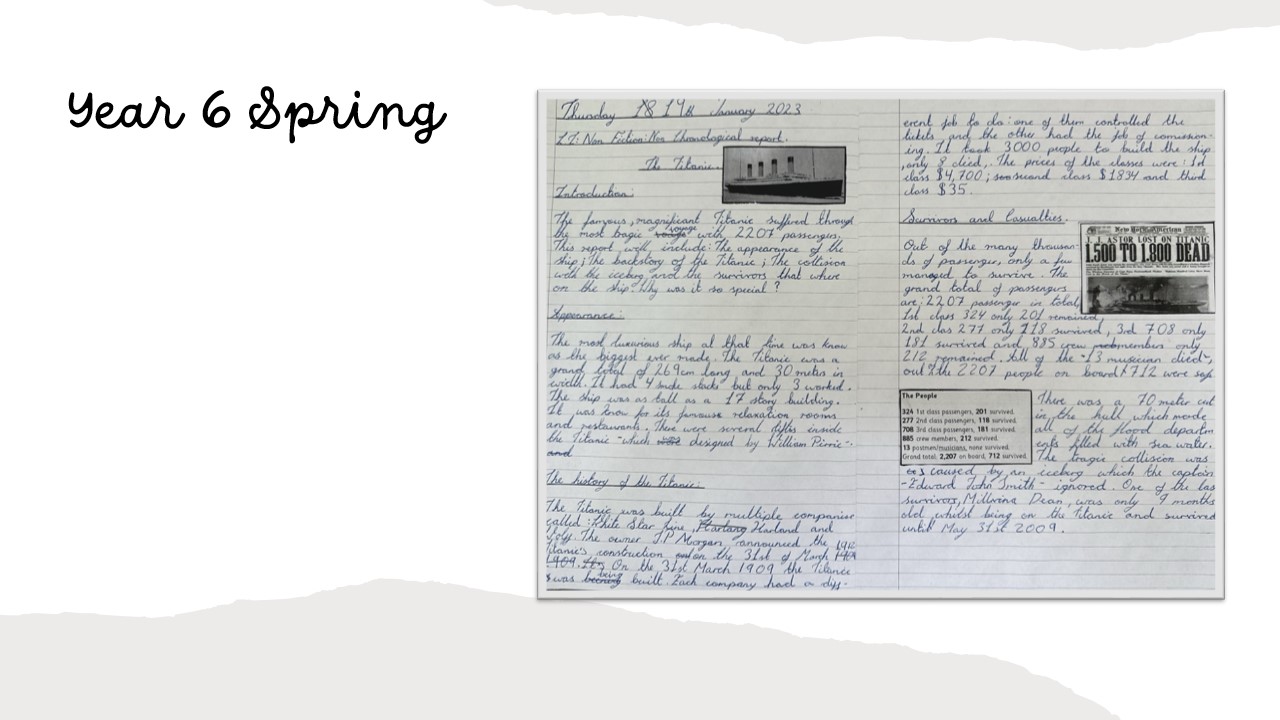 Year 6 Spring
Thursday 18 19th January 2023
LI: Non Fiction: Non Chronological report.
The Titanic.
Introduction:
The famous, magnificant Titanic suffered through
the most tragic voyage with 2207 passengers.
This report well include: The appearance of the
ship; The backstory of the Titanic; The collision
with the iceberg and the survivors that where
on the ship. Why was it so special?
Appearance:
The most luxurious ship at that time was know
as the biggest ever made. The Titanic was a
grand total of 269cm long and 30 metres in
width. It had 4 smoke stacks but only 3 worked.
The ship was as tall as a 17 story building.
It was know for its famouse relaxation rooms
and restaurants. There were several lifts inside
the Titanic -which designed by William Pirrie-.
and
The history of the Titanic:
The Titanic was built by multiple companies
called: White Star Line, Harland and
The owner J.P Morgan announced the
Titanic's construction on the 31st of March 1912
1909. On the 31st March 1909 the Titanic
was being built. Each company had a diff-
erent job to do: one of them controlled the
tickets and the other had the job of comission-
ing. It took 3000 people to build the ship
,only 8 died,. The prices of the classes were: 1st
class $4,700; second class $1834 and third
class $35.
Survivors and Casualties.
New York American
J. J. ASTOR LOST ON TITANIC
1,500 TO 1,800 DEAD
Out of the many thousan-
ds of passenger, only a few
managed to survive. The
grand total of passengers
are: 2207 passenger in total,
1st class 324 only 201 remained,
2nd clas 277 only 118 survived, 3rd 708 only
181 survived and 885 crew members only
212 remained. All of the -13 musician died-,
out the 2207 people on board 712 were safe
The People
324 1st class passengers, 201 survived.
277 2nd class passengers, 118 survived.
708 3rd class passengers, 181 survived.
885 crew members, 212 survived.
13 postmen/musicians, none survived.
Grand total: 2,207 on board, 712 survived.
There was a 70 meter cut
in the hull which made
all of the flood departm
ents filled with sea water.
The tragic collision was
caused by an iceberg which the captain
-Edward John Smith- ignored. One of the las
survivors, Millvina Dean, was only 9 months
old ,whilst being on the Titanic and survived
until May 31st 2009.